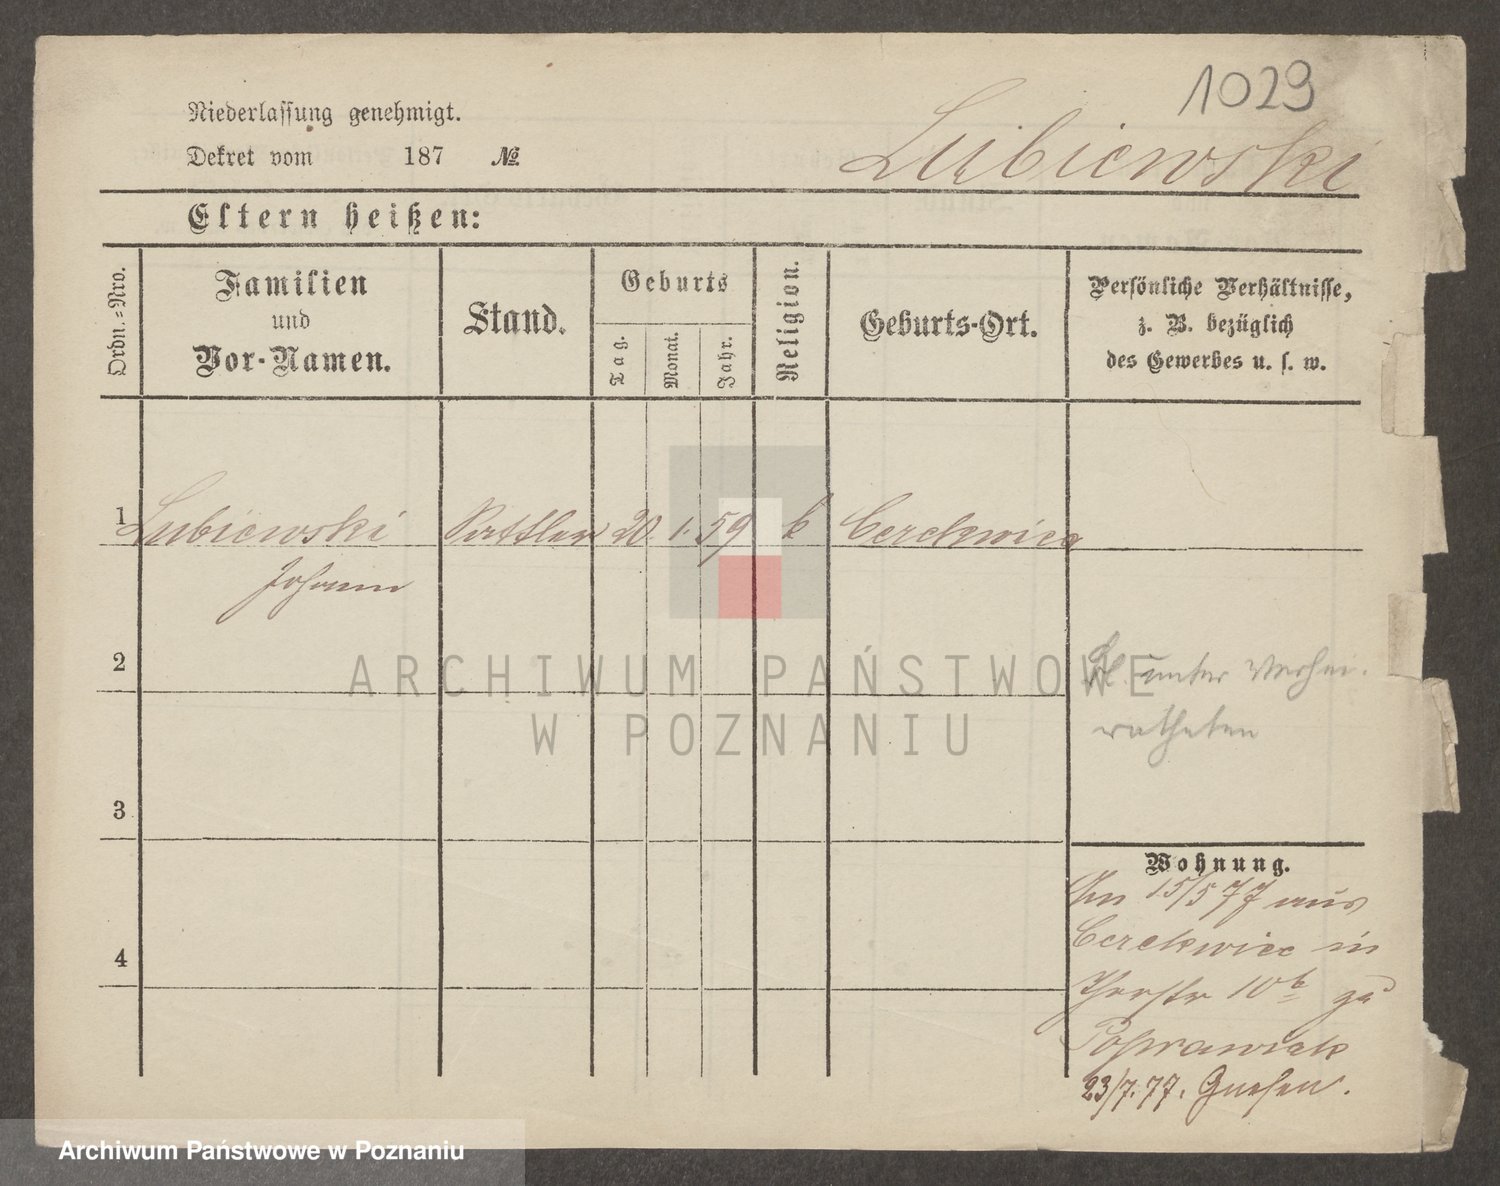 1029
Niederlassung genehmigt.
Dekret vom 187 №
Lubiewski
Eltern heißen:
Ordn.-Nro.
Familien
und
Vor-Namen.
Stand.
Geburts
Tag.
Monat.
Jahr.
Religion.
Geburts-Ort.
Persönliche Verhältnisse,
z. B. bezüglich
des Gewerbes u. s. w.
1 Lubiewski Sattler 20 1. 59 k Cerekwica
Johann
2
unter Verhei-
ratheten
3
Wohnung.
Am 15/5 77 aus
Cerekwice in
10b zu
23/7. 77. Gnesen.
4
ARCHIWUM PAŃSTWOWE
W POZNANIU
Archiwum Państwowe w Poznaniu